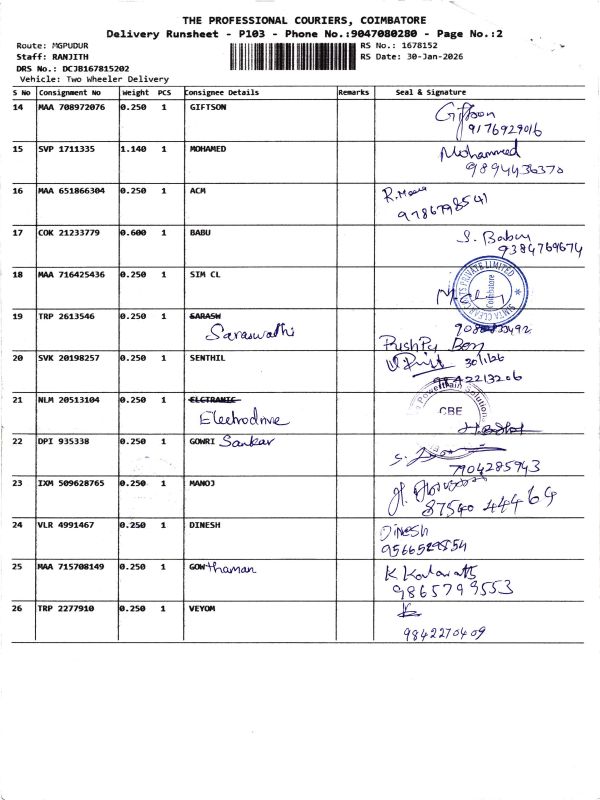 THE PROFESSIONAL COURIERS, COIMBATORE
Delivery Runsheet - P103 - Phone No.:9047080280 - Page No.:2
Route: MGPUDUR
RS No.: 1678152
Staff: RANJITH
RS Date: 30-Jan-2026
DRS No.: DCJB167815202
Vehicle: Two Wheeler Delivery
S No Consignment No Weight PCS Consignee Details Remarks Seal & Signature
14 MAA 708972076 0.250 1 GIFTSON Giftson
9176929016
15 SVP 1711335 1.140 1 MOHAMED Mohammed
9894436370
16 MAA 651866304 0.250 1 ACM R.Meera
9786798541
17 COK 21233779 0.600 1 BABU S. Babu
9384769674
18 MAA 716425436 0.250 1 SIM CL
PRIVATE LIMITED
Coimbatore
19 TRP 2613546 0.250 1 SARASW
Saraswathi
20 SVK 20198257 0.250 1 SENTHIL 30/1/26
21 NLM 20513104 0.250 1 ELCTRANIC
Electrodrive
Powertrain Solutions
CBE
22 DPI 935338 0.250 1 GOWRI Sankar
7904285943
23 IXM 509628765 0.250 1 MANOJ
87540 44464
24 VLR 4991467 0.250 1 DINESH DINESH
9566529854
25 MAA 715708149 0.250 1 GOWthaman
9865799553
26 TRP 2277910 0.250 1 VEYOM
9842270409